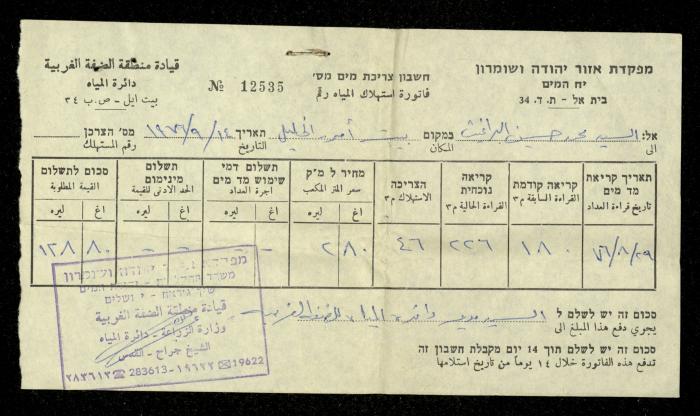 מפקדת אזור יהודה ושומרון
יח המים
בית אל - ת. ד. 34
חשבון צריכת מים מס'
فاتورة استهلاك المياه رقم
№ 12535
قيادة منطقة الضفة الغربية
دائرة المياه
بيت ايل - ص. ب ٣٤
אל: السيد محمد حسين במקום بيت أمر الخليل תאריך ١٩٧٦/٩/١٤ מס' הצרכן
الى المكان التاريخ رقم المستهلك
תאריך קריאת מד מים קריאה קודמת קריאה נוכחית הצריכה מחיר ל מ"ק תשלום דמי שימוש מד מים תשלום מינימום סכום לתשלום
تاريخ قراءة العداد القراءة السابقة م٣ القراءة الحالية م٣ الاستهلاك م٣ سعر المتر المكعب اجرة العداد الحد الادنى للقيمة القيمة المطلوبة
اغ ليره اغ ليره اغ ليره اغ ليره
٧٦/٨/٢٩ ١٨٠ ٢٢٦ ٤٦ ٨٠ ٢ - - - - ٨٠ ١٢٨
סכום זה יש לשלם ל السيد مدير دائرة المياه للضفة الغربية
يجري دفع هذا المبلغ الى
סכום זה יש לשלם תוך 14 יום מקבלת חשבון זה
تدفع هذه الفاتورة خلال ١٤ يوماً من تاريخ استلامها
יהודה ושומרון
قيادة منطقة الضفة الغربية
وزارة الزراعة - دائرة المياه
الشيخ جراح - القدس
٢٨٣٦١٣ ☎ 283613 - ١٩٦٢٢ ✉ 19622